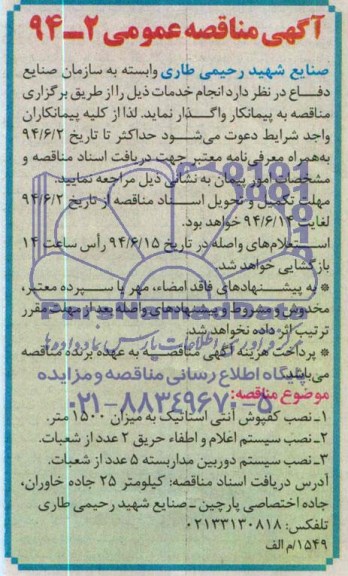 آگهی مناقصه عمومی ۲ــ۹۴
صنایع شهید رحیمی طاری وابسته به سازمان صنایع
دفاع در نظر دارد انجام خدمات ذیل را از طریق برگزاری
مناقصه به پیمانکار واگذار نماید. لذا از کلیه پیمانکاران
واجد شرایط دعوت می‌شود حداکثر تا تاریخ ۹۴/۶/۲
به‌همراه معرفی‌نامه معتبر جهت دریافت اسناد مناقصه و
مشخصات امور پیمان به نشانی ذیل مراجعه نمایید.
مهلت تکمیل و تحویل اسناد مناقصه از تاریخ ۹۴/۶/۲
لغایت ۹۴/۶/۱۴ خواهد بود.
استعلام‌های واصله در تاریخ ۹۴/۶/۱۵ رأس ساعت ۱۴
بازگشایی خواهد شد.
* به پیشنهادهای فاقد امضاء، مهر یا سپرده معتبر،
مخدوش و مشروط و پیشنهادهای واصله بعد از مهلت مقرر
ترتیب اثر داده نخواهد شد.
ParsNamadData
مرکز فرآوری اطلاعات پارس نماد داده‌ها
* پرداخت هزینه آگهی مناقصه به عهده برنده مناقصه
می‌باشد.
پایگاه اطلاع رسانی مناقصه و مزایده
موضوع مناقصه:
۰۲۱-۸۸۳۴۹۶۷۰-۵
۱ـ نصب کفپوش آنتی استاتیک به میزان ۱۵۰۰ متر.
۲ـ نصب سیستم اعلام و اطفاء حریق ۲ عدد از شعبات.
۳ـ نصب سیستم دوربین مداربسته ۵ عدد از شعبات.
آدرس دریافت اسناد مناقصه: کیلومتر ۲۵ جاده خاوران،
جاده اختصاصی پارچین ـ صنایع شهید رحیمی طاری
تلفکس: ۰۲۱۳۳۱۳۰۸۱۸
۱۵۴۹/م الف